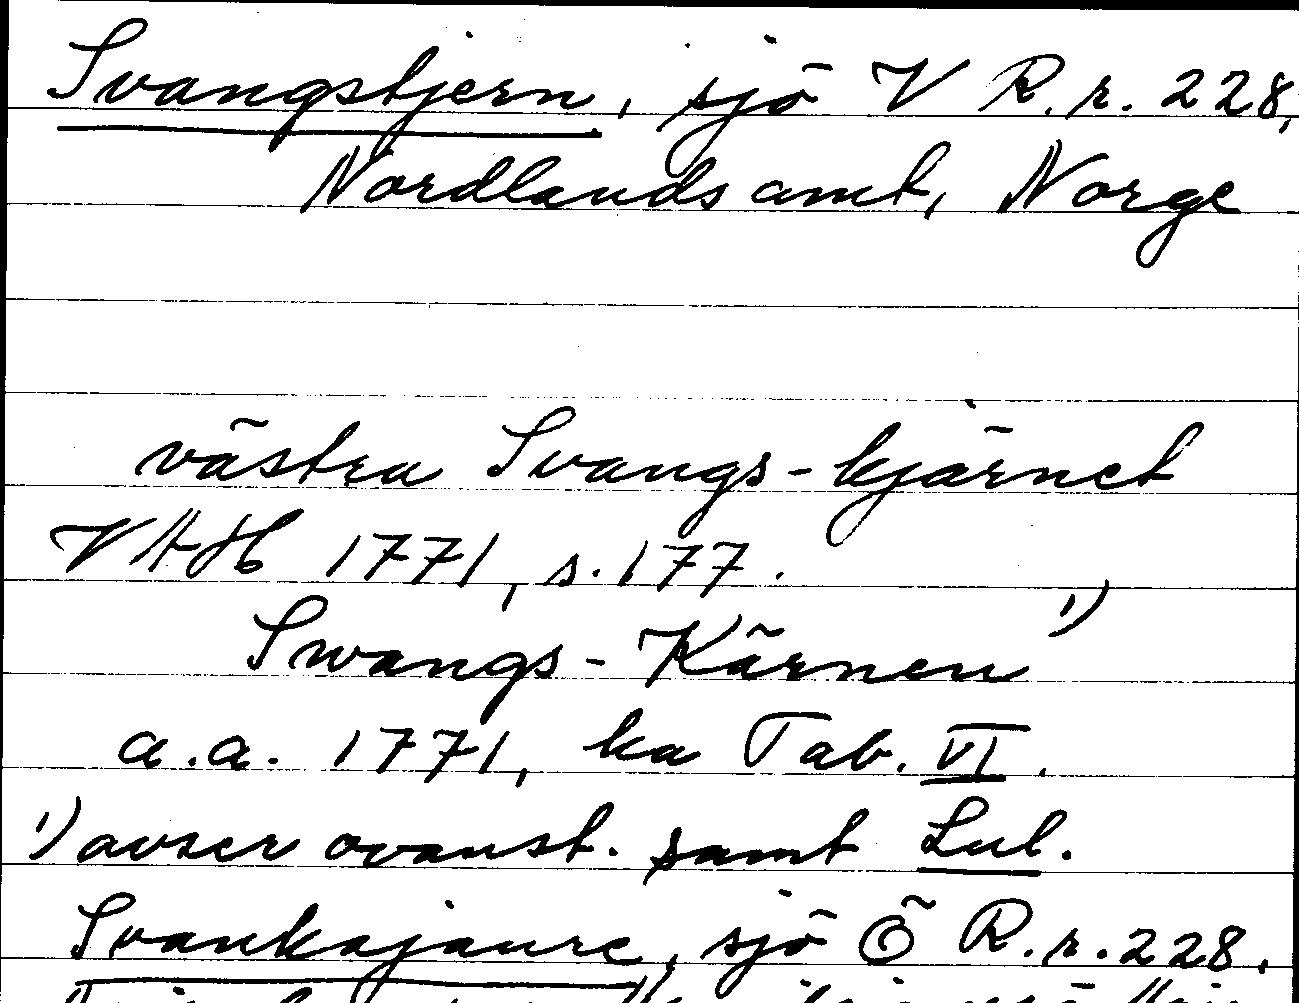 Svangstjern, sjö V R.r. 228,
Nordlands amt, Norge
västra Svangs-kjärnet
VAH 1771, s. 177.
Swangs-Kärnen ¹)
a.a. 1771, ka Tab. VI.
¹) avser ovanst. samt Lul.
Svankajaure, sjö Ö R.r. 228.